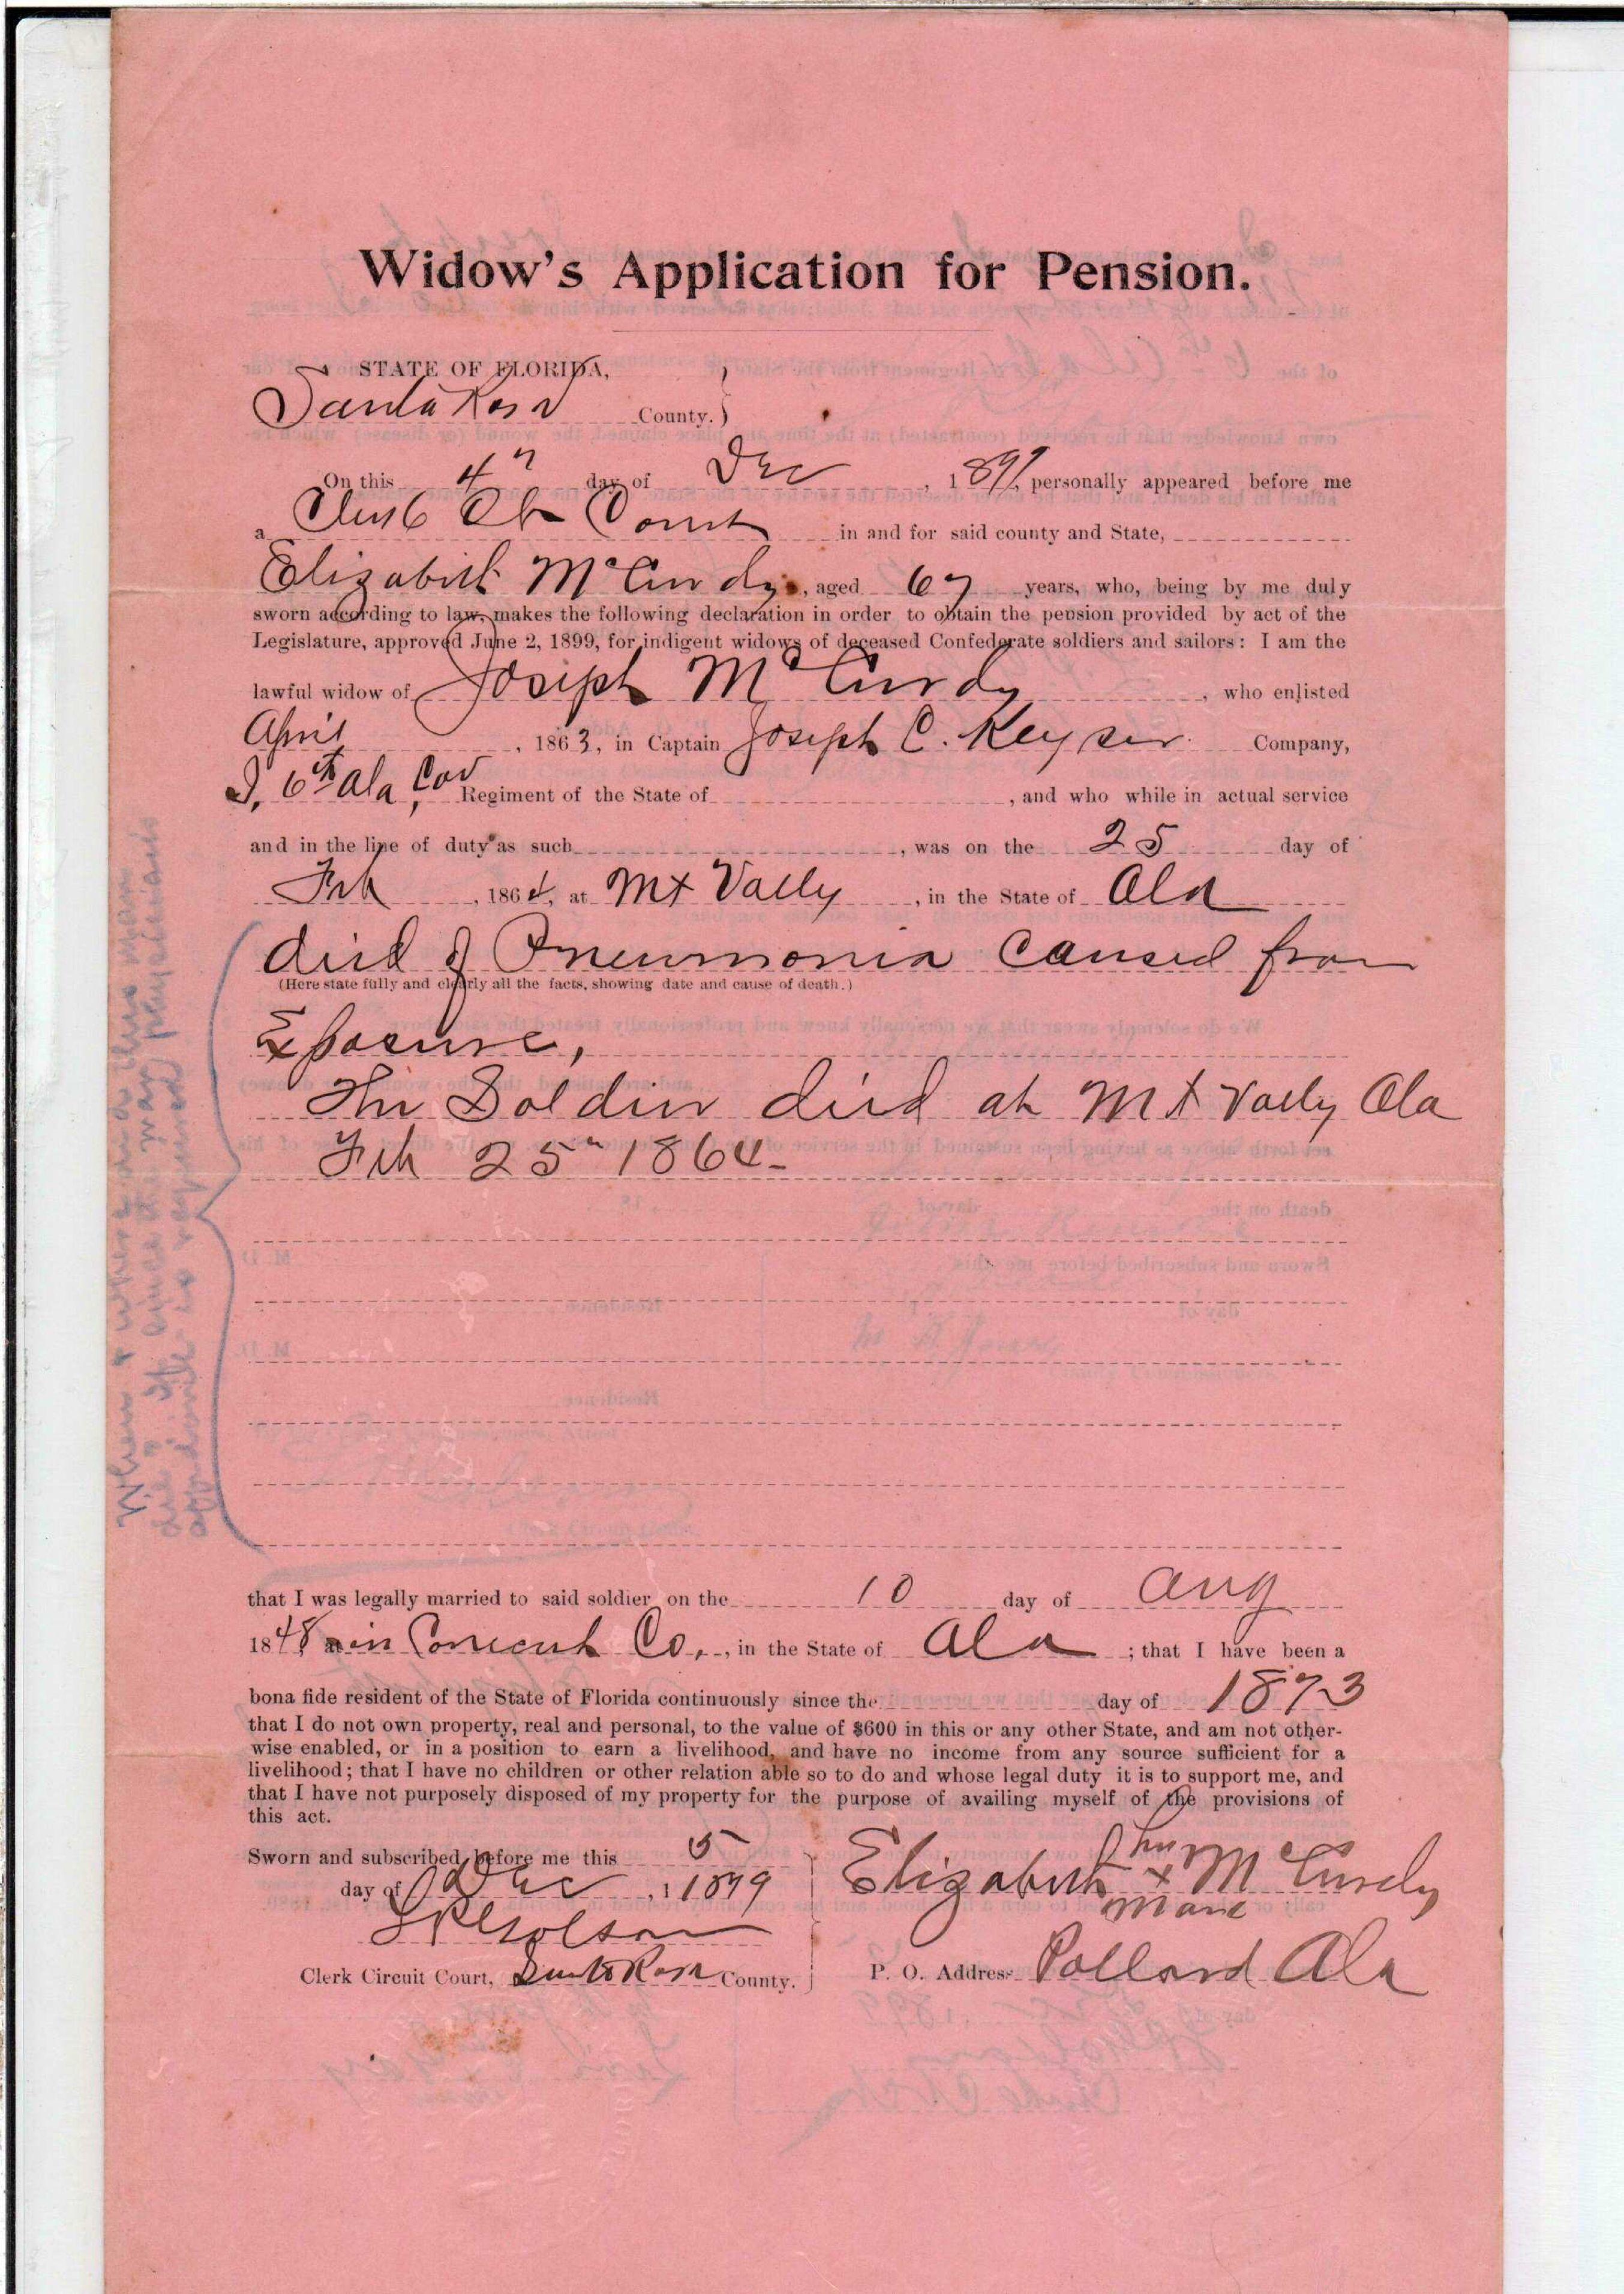 Widow's Application for Pension.
STATE OF FLORIDA,
Santa Rosa County.
On this 4" day of Dec, 1899, personally appeared before me
a Clerk Cir Court in and for said county and State,
Elizabeth McCurdy, aged 67 years, who, being by me duly
sworn according to law, makes the following declaration in order to obtain the pension provided by act of the
Legislature, approved June 2, 1899, for indigent widows of deceased Confederate soldiers and sailors: I am the
lawful widow of Joseph McCurdy, who enlisted
April, 1863, in Captain Joseph C. Keyser Company,
I, 6th Ala, Cav Regiment of the State of , and who while in actual service
and in the line of duty as such , was on the 25 day of
Feb, 1864, at Mt Vally, in the State of Ala
died of Pneumonia caused from
(Here state fully and clearly all the facts, showing date and cause of death.)
Exposure,
The Soldier died at Mt Vally Ala
Feb 25" 1864-
When & where did this man
die? If since the war physicians
affidavit is required
that I was legally married to said soldier on the 10 day of Aug
1848, at in Conecuh Co., in the State of Ala; that I have been a
bona fide resident of the State of Florida continuously since the day of 1873
that I do not own property, real and personal, to the value of $600 in this or any other State, and am not other-
wise enabled, or in a position to earn a livelihood, and have no income from any source sufficient for a
livelihood; that I have no children or other relation able so to do and whose legal duty it is to support me, and
that I have not purposely disposed of my property for the purpose of availing myself of the provisions of
this act.
Sworn and subscribed before me this 5
day of Dec, 1 1899
Clerk Circuit Court, Santa Rosa County.
her
Elizabeth x McCurdy
mark
P. O. Address Pollard Ala